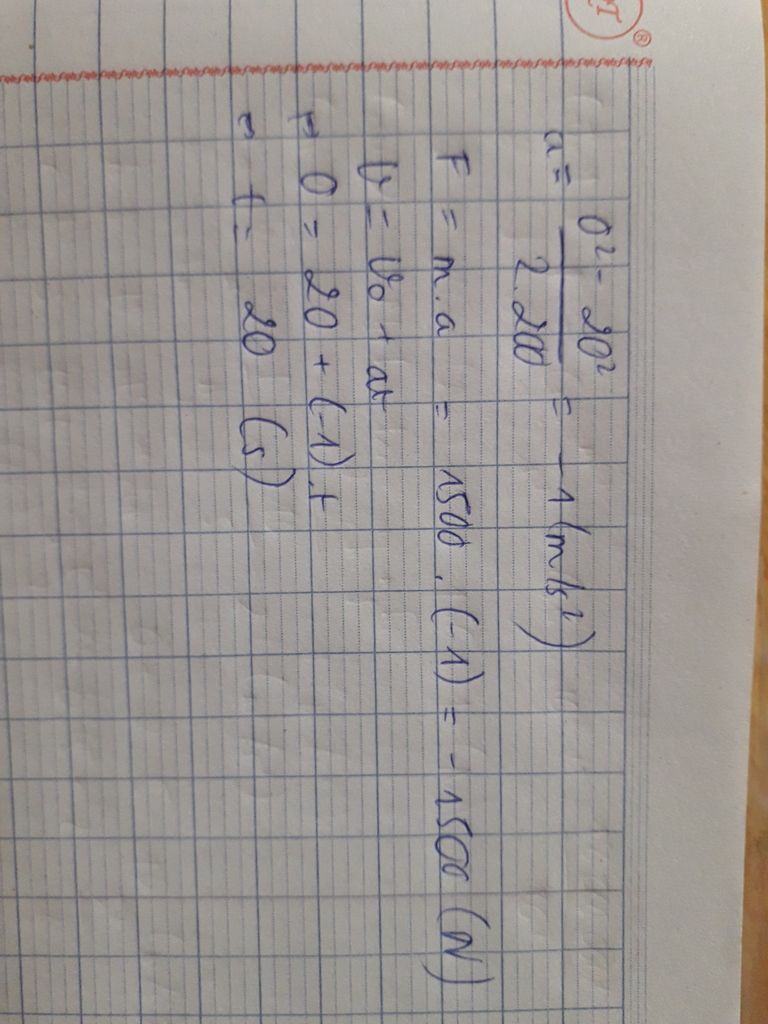 a = (0² - 20²)/(2.200) = -1 (m/s²)
F = m.a = 1500.(-1) = -1500 (N)
v = v₀ + at
⇒ 0 = 20 + (-1).t
⇒ t = 20 (s)